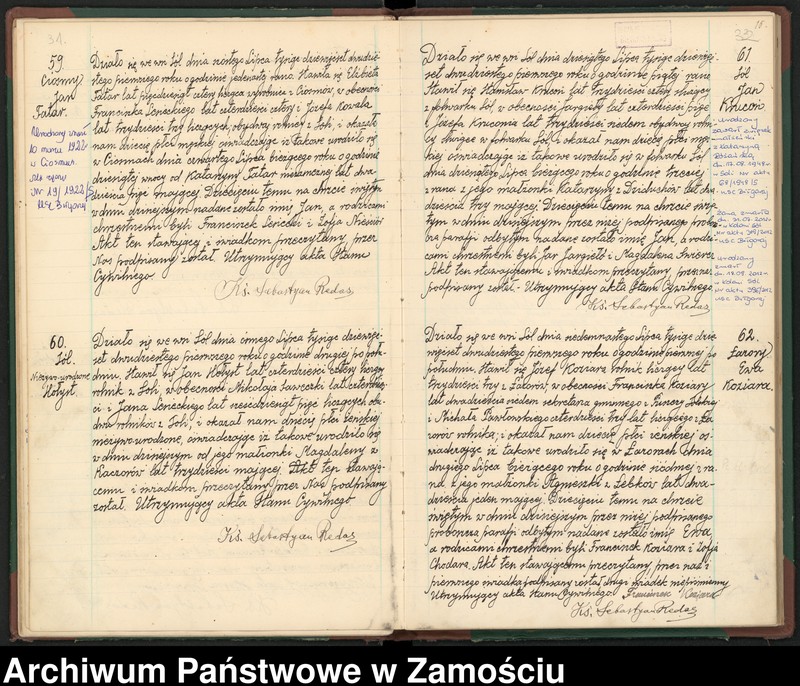 31.
59
Ciosmy
Jan
Fatar.
Działo się we wsi Sól dnia szóstego Lipca tysiąc dziewięćset dwudzie-
stego pierwszego roku o godzinie jedenastej rano. Stawiła się Elżbieta
Fatar lat pięćdziesiąt cztery licząca wyrobnica z Ciosmów, w obecności
Franciszka Seneckiego lat czterdzieści cztery i Józefa Kowala
lat trzydzieści trzy liczących, obydwóch rolników z Soli, i okazała
nam dziecię płci męskiej oświadczając iż takowe urodziło się
w Ciosmach dnia czwartego Lipca bieżącego roku o godzinie
dziesiątej w nocy od Katarzyny Fatar niezamężnej lat dwa-
dzieścia pięć mającej. Dziecięciu temu na chrzcie świętym
w dniu dzisiejszym nadane zostało imię Jan, a rodzicami
chrzestnemi byli Franciszek Senecki i Zofja
Akt ten stawającej i świadkom przeczytany przez
Nas podpisany został. Utrzymujący akta Stanu
Cywilnego
Ks. Sebastyan Redas
60.
Sól.
Nieżywo-urodzone
Hołyst.
Działo się we wsi Sól dnia ósmego Lipca tysiąc dziewięć-
set dwudziestego pierwszego roku o godzinie drugiej po połu-
dniu. Stawił się Jan Hołyst lat czterdzieści cztery liczący
rolnik z Soli, w obecności Mikołaja Sawczki lat czterdzieś-
ci i Jana Seneckiego lat sześćdziesiąt pięć liczących oby-
dwu rolników z Soli, i okazał nam dziecię płci żeńskiej
nieżywo urodzone, oświadczając iż takowe urodziło się
w dniu dzisiejszym od jego małżonki Magdaleny z
Kaczorów lat trzydzieści mającej. Akt ten stawają-
cemu i świadkom przeczytany przez Nas podpisany
został. Utrzymujący akta Stanu Cywilnego
Ks. Sebastyan Redas
61
Sól
Jan
Kruczoń
Działo się we wsi Sól dnia dziesiątego Lipca tysiąc dziewięć-
set dwudziestego pierwszego roku o godzinie piątej rano
Stawił się Stanisław Kruczoń lat trzydzieści cztery służący
z folwarku Sól, w obecności Jargieły lat czterdzieści pięć
i Józefa Kruczonia lat trzydzieści siedem obydwóch rolni-
w folwarku Sól i okazał nam dziecię płci mę-
skiej oświadczając iż takowe urodziło się w folwarku Sól
dnia dziesiątego Lipca bieżącego roku o godzinie trzeciej
z rana z jego małżonki Katarzyny z Dziduchów lat dwa-
dzieścia trzy mającej. Dziecięciu temu na chrzcie świę-
tym w dniu dzisiejszym przez niżej podpisanego probo-
szcza parafji odbytym nadane zostało imię Jan, a rodzi-
cami chrzestnemi byli Jan Jargieło i Magdalena
Akt ten stawającemu i świadkom przeczytany przez nas
podpisany został. Utrzymujący akta Stanu Cywilnego
Ks. Sebastyan Redas
62.
Żarony
Ewa
Koziara.
Działo się we wsi Sól dnia siedemnastego Lipca tysiąc dzie-
więćset dwudziestego pierwszego roku o godzinie pierwszej po
południu. Stawił się Józef Koziara rolnik liczący lat
trzydzieści trzy z Żarów, w obecności Franciszka Koziary
lat dwadzieścia siedem sekretarza gminnego z Puszczy Solskiej
i Michała Pawłowskiego czterdzieści trzy lat liczącego z Ża-
rów rolnika; i okazał nam dziecię płci żeńskiej oś-
wiadczając iż takowe urodziło się w Żaronach dnia
drugiego Lipca bieżącego roku o godzinie siódmej z ra-
na z jego małżonki Agnieszki z Łebków lat dwa-
dzieścia jeden mającej. Dziecięciu temu na chrzcie
świętym w dniu dzisiejszym przez niżej podpisanego
proboszcza parafji odbytym nadane zostało imię Ewa
a rodzicami chrzestnemi byli Franciszek Koziara i Zofja
Chodara. Akt ten stawającemu przeczytany, przez nas i
pierwszego świadka podpisany został drugi świadek niepiśmienny
Utrzymujący akta Stanu Cywilnego. Franciszek Koziara
Ks. Sebastyan Redas
Archiwum Państwowe w Zamościu